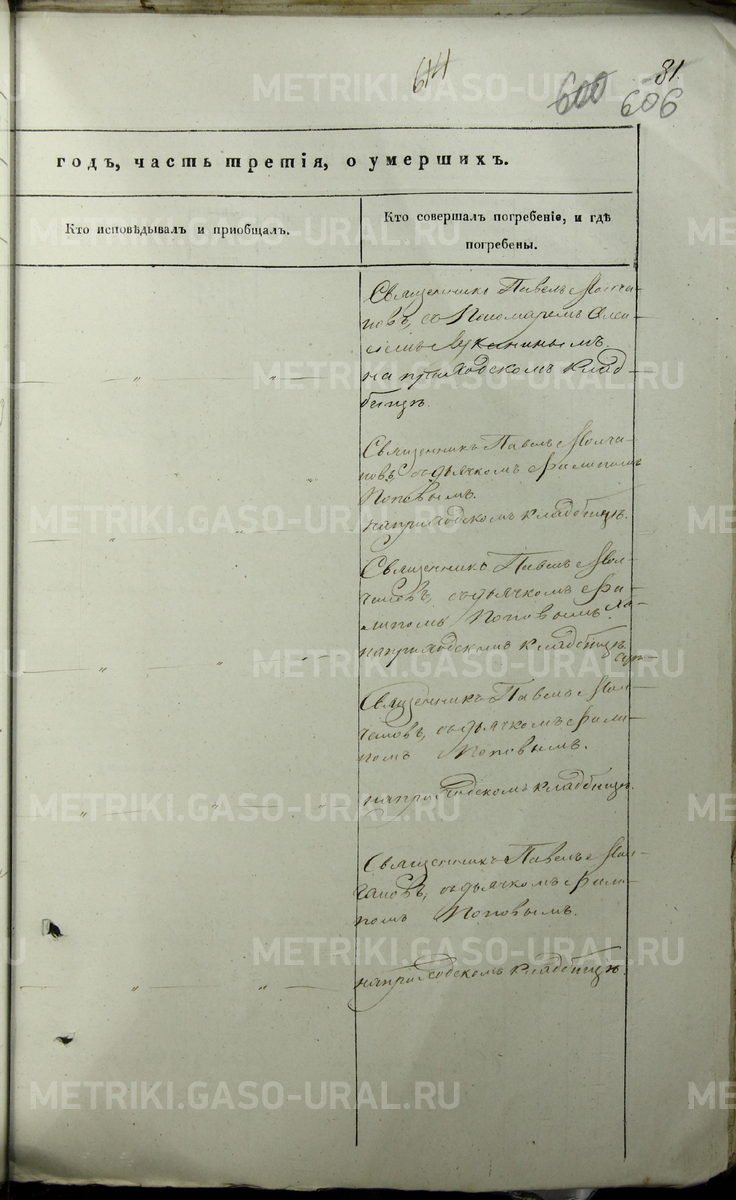 614
81.
600 606
годъ, часть третія, о умершихъ.
Кто исповѣдывалъ и пріобщалъ.
Кто совершалъ погребеніе, и гдѣ
погребены.
Священникъ Павелъ Молча-
новъ, съ Пономаремъ
Луканинымъ.
на приходскомъ клад-
бищѣ.
Священникъ Павелъ Молча-
новъ, съ дьячкомъ Филипомъ
Поповымъ.
на приходскомъ кладбищѣ.
Священникъ Павелъ Мол-
чановъ, съ дьячкомъ Фи-
липомъ Поповымъ.
на приходскомъ кладбищѣ.
Священникъ Павелъ Мол-
чановъ, съ дьячкомъ Фили-
помъ Поповымъ.
на приходскомъ кладбищѣ.
Священникъ Павелъ Мол-
чановъ, съ дьячкомъ Фили-
помъ Поповымъ.
на приходскомъ кладбищѣ.
METRIKI.GASO-URAL.RU